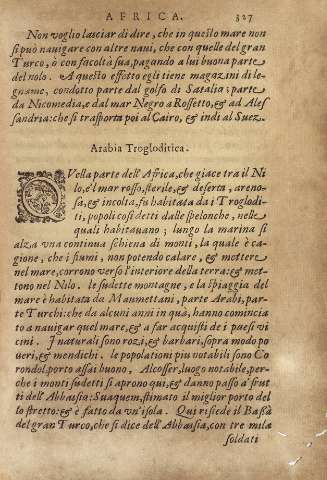 AFRICA. 327
Non voglio lasciar di dire, che in questo mare non
si può navigare con altre navi, che con quelle del gran
Turco, ò con facoltà sua, pagando a lui buona parte
del nolo. A questo effetto egli tiene magazini di le-
gname, condotto parte dal golfo di Satalia; parte
da Nicomedia, e dal mar Negro a Rossetto, & ad Ales
sandria: che si trasporta poi al Cairo, & indi al Suez.
Arabia Trogloditica.
QVella parte dell'Africa, che giace tra il Ni
lo, e'l mar rosso, sterile, & deserta, areno-
sa, & incolta, fu habitata da i Troglodi-
ti, popoli così detti dalle spelonche, nelle
quali habitauano; lungo la marina si
alza vna continua schiena di monti, la quale è ca-
gione, che i fiumi, non potendo calare, & mettere
nel mare, corrono verso l'interiore della terra: & met-
tono nel Nilo. le sudette montagne, e la spiaggia del
mare è habitata da Maumettani, parte Arabi, par-
te Turchi: che da alcuni anni in quà, hanno comincia
to a navigar quel mare, & a far acquisti de i paesi vi
cini. I naturali sono rozi, & barbari, sopra modo po
ueri, & mendichi. le popolationi piu notabili sono Co
rondol, porto assai buono, Alcosser, luogo notabile, per-
che i monti sudetti si aprono qui, & danno passo a' frut
ti dell'Abbassia: Suaquem, stimato il miglior porto del
lo stretto: & è fatto da vn'isola. Qui risiede il Bassà
del gran Turco, che si dice dell'Abbassia, con tre mila
soldati